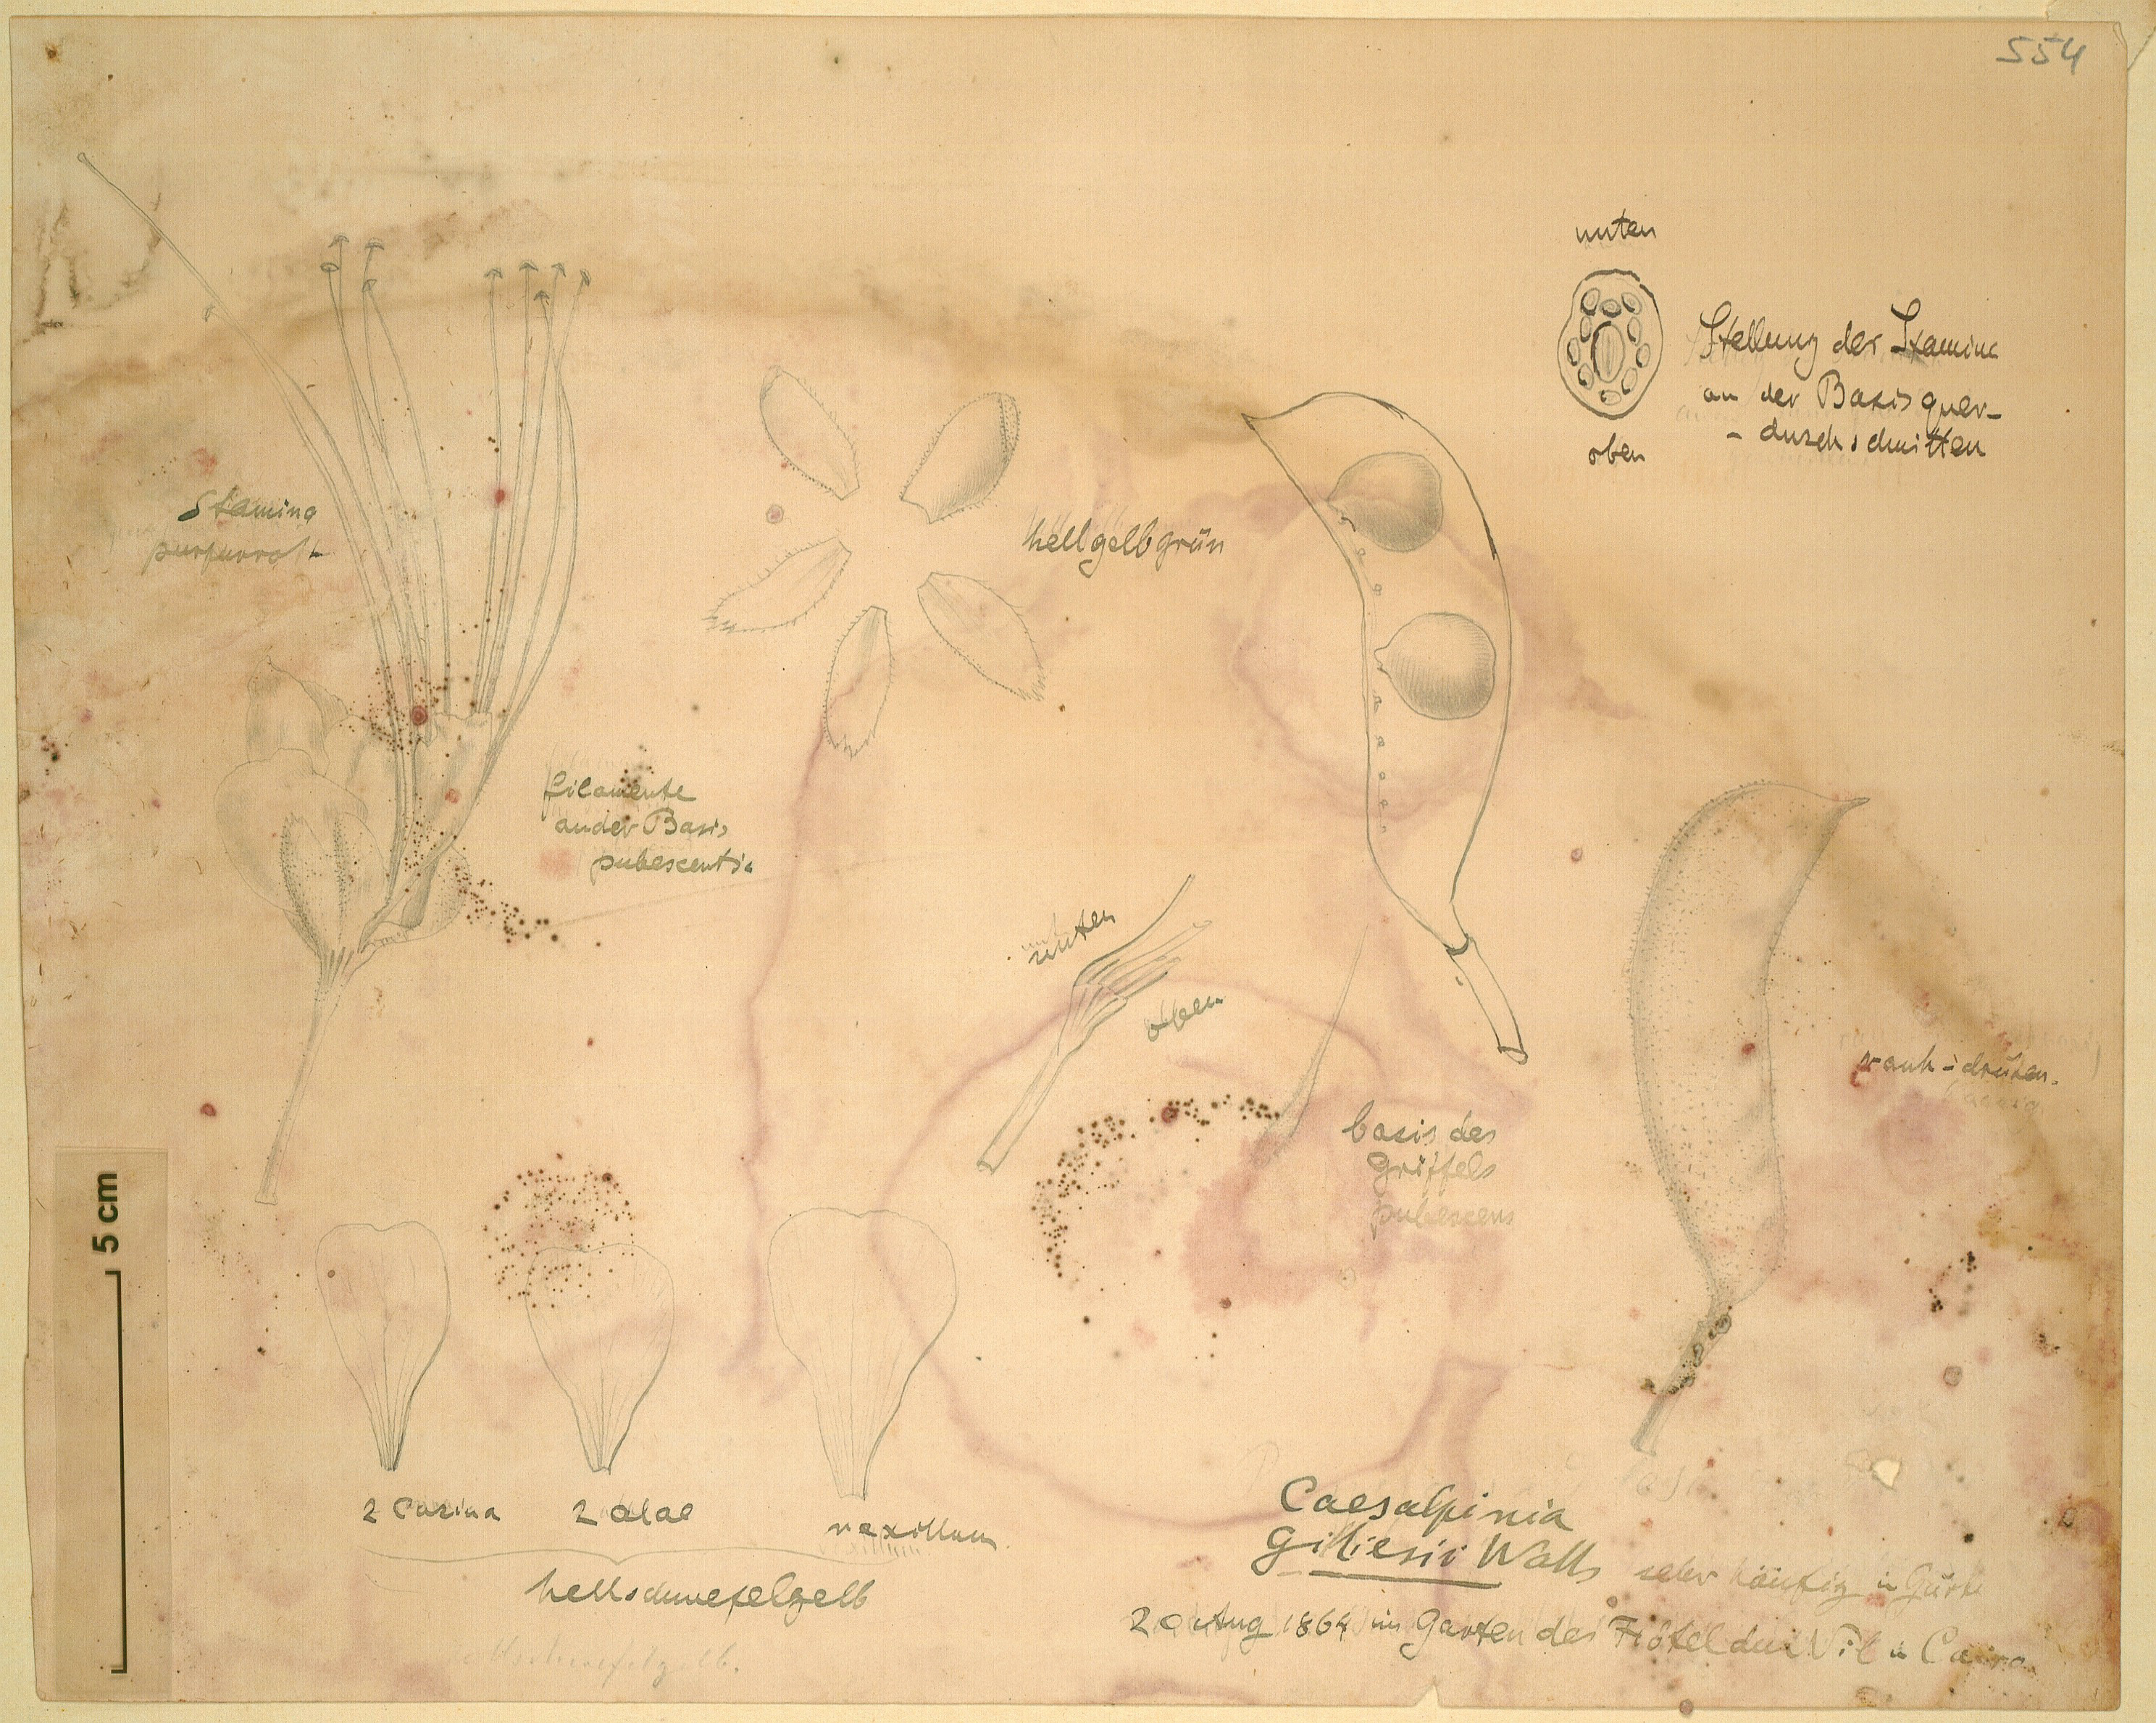 554
unten
Stellung der Stamina
an der Basis quer-
- durchschnitten
oben
Stamina
purpurroth
hellgelbgrün
filamente
an der Basis
pubescentia
unten
oben
basis des
Griffels
pubescens
rauh-drüsen-
haarig
5 cm
2 Carina
2 alae
vexillum
hellschwefelgelb
hellschwefelgelb.
Caesalpinia
Giliesii Walls sehr häufig in Gärten
20 Aug 1864 im Garten des Hôtel du Nil in Cairo